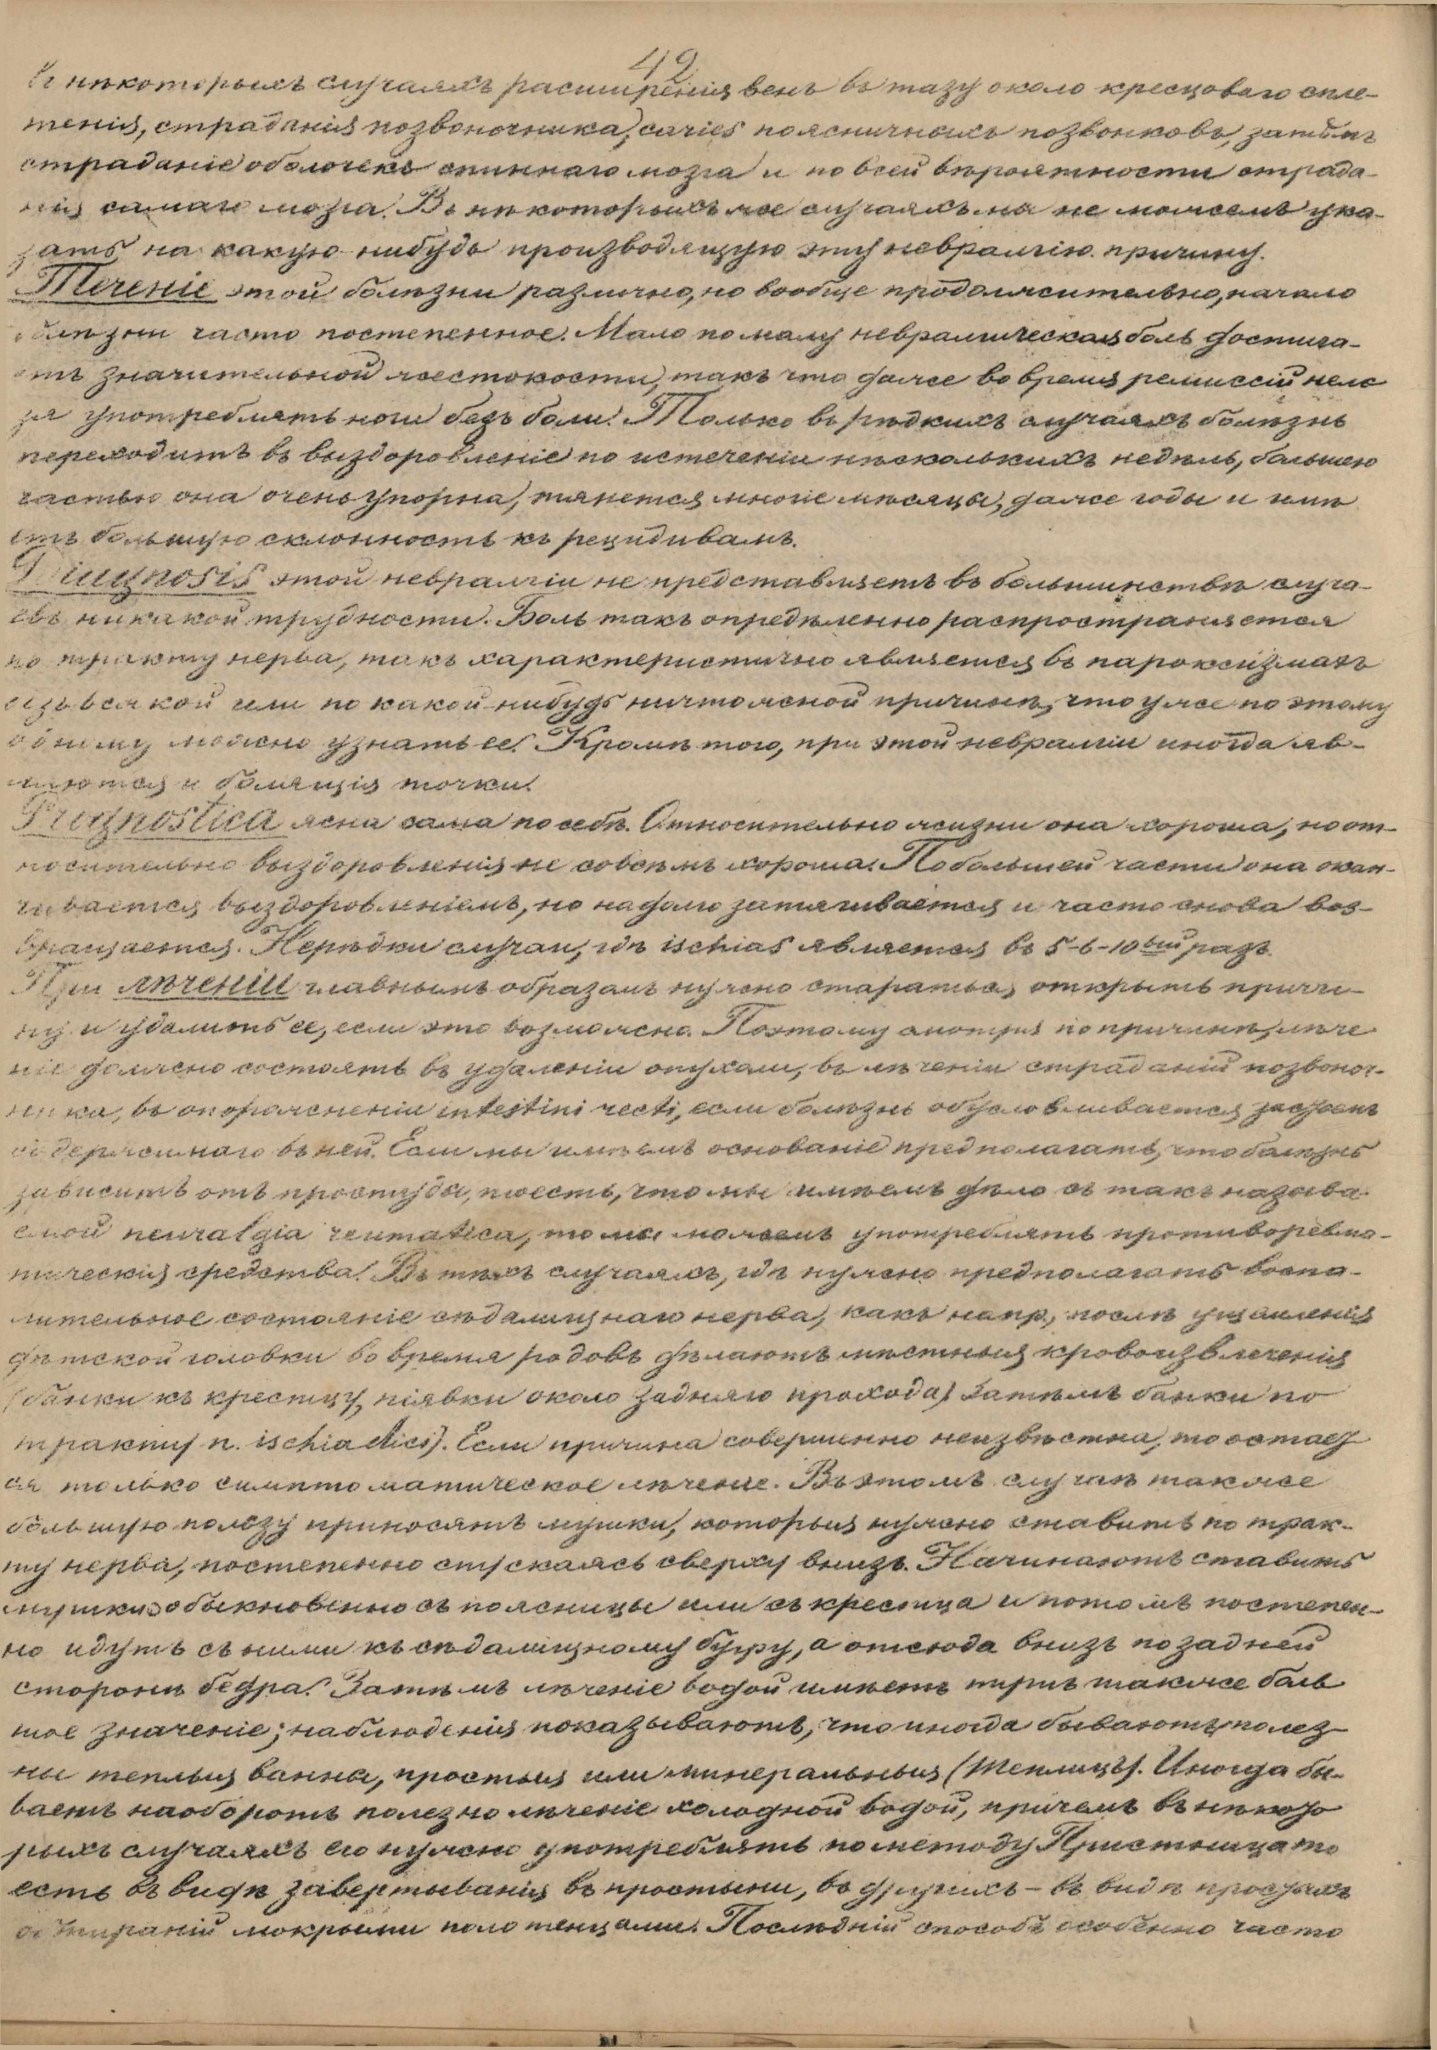 42
Въ нѣкоторыхъ случаяхъ расширенія венъ въ тазу около крестцоваго спле-
тенія, страданія позвоночника, caries поясничныхъ позвонковъ, затѣмъ
страданіе оболочекъ спиннаго мозга и по всей вѣроятности страда-
нія самаго мозга. Въ нѣкоторыхъ же случаяхъ мы не можемъ ука-
зать на какую нибудь производящую эту невралгію причину.
Теченіе этой болѣзни различно, но вообще продолжительно, начало
болѣзни часто постепенное. Мало по малу невралгическая боль достига-
етъ значительной жестокости, такъ что даже во время ремиссій нель
зя употреблять ноги безъ боли. Только въ рѣдкихъ случаяхъ болѣзнь
переходитъ въ выздоровленіе по истеченіи нѣсколькихъ недѣль, большею
частью она очень упорна, тянется многіе мѣсяцы, даже годы и имѣ
етъ большую склонность къ рецидивамъ.
Diagnosis этой невралгіи не представляетъ въ большинствѣ случа-
евъ никакой трудности. Боль такъ опредѣленно распространяется
по тракту нерва, такъ характеристично является въ пароксизмахъ
безъ всякой или по какой-нибудь ничтожной причинѣ, что уже по этому
одному можно узнать ее. Кромѣ того, при этой невралгіи иногда яв-
ляются и болящія точки.
Prognostica ясна сама по себѣ. Относительно жизни она хороша, но от-
носительно выздоровленія не совсѣмъ хороша. По большей части она окан-
чивается выздоровленіемъ, но на долго затягивается и часто снова воз-
вращается. Нерѣдки случаи, гдѣ ischias является въ 5-6-10ый разъ.
При лѣченіи главнымъ образомъ нужно стараться открыть причи-
ну и удалить ее, если это возможно. Поэтому смотря по причинѣ, лѣче
ніе должно состоять въ удаленіи опухоли, въ лѣченіи страданій позвоноч-
ника, въ опорожненіи intestini recti, если болѣзнь обусловливается застоемъ
содержимаго въ ней. Если мы имѣемъ основаніе предполагать, что болѣзнь
зависитъ отъ простуды, тоесть, что мы имѣемъ дѣло съ такъ называ-
емой neuralgia reumatica, то мы можемъ употреблять противоревма-
тическія средства. Въ тѣхъ случаяхъ, гдѣ нужно предполагать воспа-
лительное состояніе сѣдалищнаго нерва, какъ напр, послѣ ущемленія
дѣтской головки во время родовъ дѣлаютъ мѣстныя кровоизвлеченія
(банки къ крестцу, піявки около задняго прохода) Затѣмъ банки по
тракту n. ischiadici). Если причина совершенно неизвѣстна, то остает
ся только симптоматическое лѣченіе. Въ этомъ случаѣ также
большую пользу приносятъ мушки, которыя нужно ставить по трак-
ту нерва, постепенно спускаясь сверху внизъ. Начинаютъ ставить
мушки обыкновенно съ поясницы или съ крестца и потомъ постепен-
но идутъ съ ними къ сѣдалищному бугру, а отсюда внизъ по задней
сторонѣ бедра. Затѣмъ лѣченіе водой имѣетъ также боль
шое значеніе; наблюденія показываютъ, что иногда бываютъ полез-
ны теплыя ванны, простыя или минеральныя (Теплицъ). Иногда бы-
ваетъ наоборотъ полезно лѣченіе холодной водой, причемъ въ нѣкото
рыхъ случаяхъ его нужно употреблять по методу Пристница то
есть въ видѣ завертыванія въ простыни, въ другихъ - въ видѣ простыхъ
обтираній мокрыми полотенцами. Послѣдній способъ особенно часто